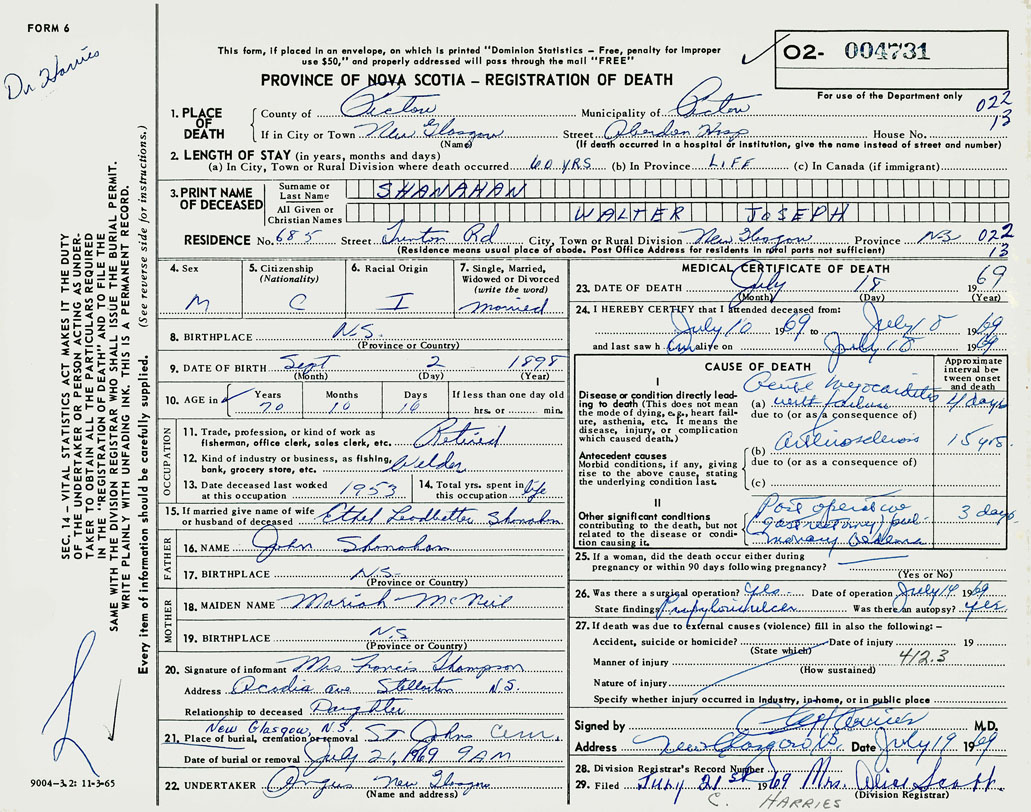 FORM 6
Dr Harries
This form, if placed in an envelope, on which is printed "Dominion Statistics – Free, penalty for improper
use $50," and properly addressed will pass through the mail "FREE"
PROVINCE OF NOVA SCOTIA – REGISTRATION OF DEATH
O2- 004731
For use of the Department only
022
13
1. PLACE OF DEATH
County of Pictou Municipality of Pictou
If in City or Town New Glasgow Street Aberdeen Hosp House No.
(Name) (If death occurred in a hospital or institution, give the name instead of street and number)
2. LENGTH OF STAY (in years, months and days)
(a) In City, Town or Rural Division where death occurred 60 YRS (b) In Province LIFE (c) In Canada (if immigrant)
3. PRINT NAME OF DECEASED
Surname or Last Name SHANAHAN
All Given or Christian Names WALTER JOSEPH
RESIDENCE No. 685 Street Trenton Rd City, Town or Rural Division New Glasgow Province NS 022
(Residence means usual place of abode. Post Office Address for residents in rural parts not sufficient) 13
4. Sex M
5. Citizenship (Nationality) C
6. Racial Origin I
7. Single, Married, Widowed or Divorced (write the word) married
8. BIRTHPLACE N.S.
(Province or Country)
9. DATE OF BIRTH Sept 2 1898
(Month) (Day) (Year)
10. AGE in Years 70 Months 10 Days 16 If less than one day old hrs. or min.
OCCUPATION
11. Trade, profession, or kind of work as fisherman, office clerk, sales clerk, etc. Retired
12. Kind of industry or business, as fishing, bank, grocery store, etc. Welder
13. Date deceased last worked at this occupation 1953
14. Total yrs. spent in this occupation life
15. If married give name of wife or husband of deceased Ethel Leadbetter Shanahan
FATHER
16. NAME John Shanahan
17. BIRTHPLACE N.S.
(Province or Country)
MOTHER
18. MAIDEN NAME Mariah McNeil
19. BIRTHPLACE N.S
(Province or Country)
20. Signature of informant Mrs Francis Thompson
Address Acadia ave Stellarton N.S.
Relationship to deceased Daughter
New Glasgow, N.S.
21. Place of burial, cremation or removal St Johns Cem.
Date of burial or removal July 21, 1969 9 AM
22. UNDERTAKER Angus New Glasgow
(Name and address)
MEDICAL CERTIFICATE OF DEATH
23. DATE OF DEATH July 18 1969
(Month) (Day) (Year)
24. I HEREBY CERTIFY that I attended deceased from:
July 10 1969 to July 18 1969
and last saw him alive on July 18 1969
CAUSE OF DEATH
Approximate interval between onset and death
I
Disease or condition directly leading to death (This does not mean the mode of dying, e.g., heart failure, asthenia, etc. It means the disease, injury, or complication which caused death.)
Acute myocarditis
(a) with failure 4 days
due to (or as a consequence of)
Antecedent causes
Morbid conditions, if any, giving rise to the above cause, stating the underlying condition last.
(b) Arteriosclerosis 15 yrs.
due to (or as a consequence of)
(c)
II
Other significant conditions contributing to the death, but not related to the disease or condition causing it.
Post operative
gastrectomy, pul-
monary oedema 3 days
25. If a woman, did the death occur either during
pregnancy or within 90 days following pregnancy?
(Yes or No)
26. Was there a surgical operation? Yes Date of operation July 14 1969
State findings Was there an autopsy? yes
27. If death was due to external causes (violence) fill in also the following: –
Accident, suicide or homicide? Date of injury 19
(State which)
Manner of injury 412.3
(How sustained)
Nature of injury
Specify whether injury occurred in industry, in-home, or in public place
Signed by M.D.
Address New Glasgow NS. Date July 19 1969
28. Division Registrar's Record Number
29. Filed July 21st 1969 Mrs. Alice Scott
(Division Registrar)
C. HARRIES
SEC. 14 – VITAL STATISTICS ACT MAKES IT THE DUTY
OF THE UNDERTAKER OR PERSON ACTING AS UNDER-
TAKER TO OBTAIN ALL THE PARTICULARS REQUIRED
IN THE "REGISTRATION OF DEATH" AND TO FILE THE
SAME WITH THE DIVISION REGISTRAR WHO SHALL ISSUE THE BURIAL PERMIT.
WRITE PLAINLY WITH UNFADING INK. THIS IS A PERMANENT RECORD.
Every item of information should be carefully supplied. (See reverse side for instructions.)
9004-3.2: 11-3-65